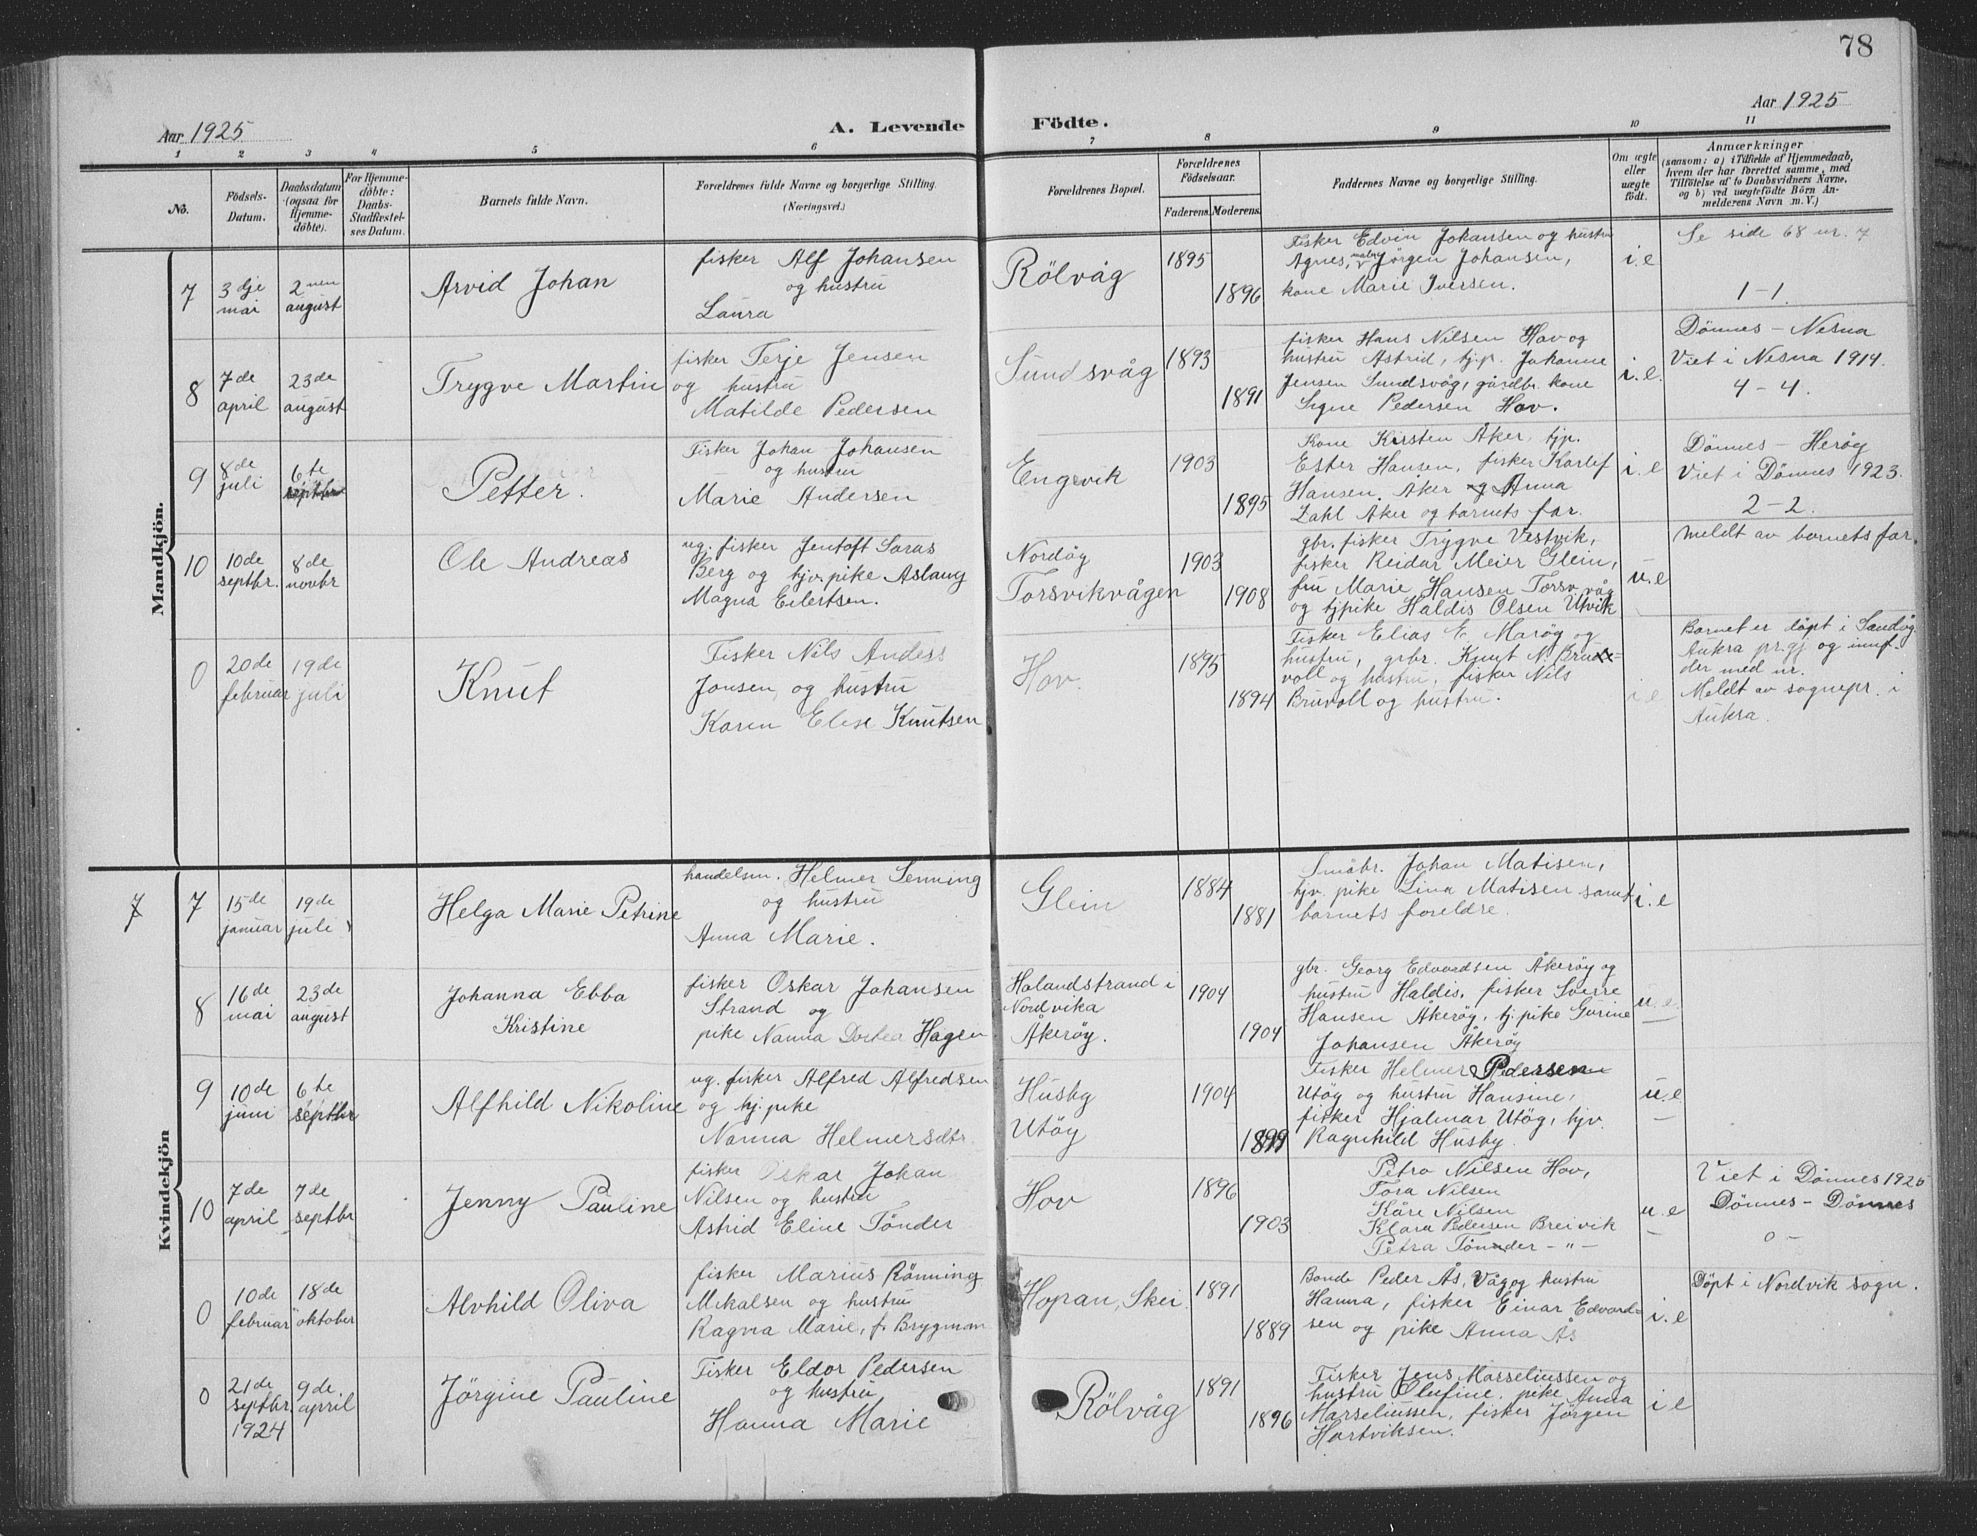 78
Aar 1925
A. Levende Födte.
Aar 1925
1 2 3 4 5 6 7 8 9 10 11
No.
Födsels-Datum.
Daabsdatum (ogsaa for Hjemme-döbte).
For Hjemme-döbte: Daabs-Stadfæstel-ses Datum.
Barnets fulde Navn.
Forældrenes fulde Navne og borgerlige Stilling.
(Næringsvei.)
Forældrenes Bopæl.
Forældrenes Födselsaar.
Faderens. Moderens.
Faddernes Navne og borgerlige Stilling.
Om ægte eller uægte födt.
Anmærkninger
(saasom: a) i Tilfælde af Hjemmedaab,
hvem der har forrettet samme, med
Tilföielse af to Daabsvidners Navne,
og b) ved uægtefödte Börn An-
melderens Navn m. V.)
Mandkjön.
7
3dje mai
2nen august
Arvid Johan
fisker Alf Johansen
og hustru
Laura
Rölvåg
1895
1896
Fisker Edvin Johansen og hustru
Agnes, Jörgen Johansen,
kone Marie Iversen.
i.e
Se side 68 nr. 7
1-1.
8
7de april
23de august
Trygve Martin
fisker Terje Jensen
og hustru
Matilde Pedersen
Sundsvåg
1893
1891
fisker Hans Nilsen Hov og
hustru Astrid, tj.p. Johanne
Jensen Sundsvåg, gårdbr. kone
Signe Pedersen Hov.
i.e.
Dönnes - Nesna
Viet i Nesna 1914.
4-4.
9
8de juli
6te septbr
Petter.
Fisker Johan Johansen
og hustru
Marie Andersen
Engvik
1903
1895
Kone Kirsten Åker, tjp.
Ester Hansen, fisker Karlef
Hansen. Åker og Anna
Zahl Åker og barnets far.
i.e
Dönnes - Heröy
Viet i Dönnes 1923.
2-2.
10
10de septbr.
8de novbr
Ole Andreas
ug. fisker Jentoft Saras
Berg og tjv. pike Aslaug
Magna Eilertsen.
Nordöy
Torsvikvågen
1903
1908
gbr. fisker Trygve Vestvik,
fisker Reidar Meier Glein,
fru Marie Hansen Torsv.våg
og tjpike Haldis Olsen Utvik
u.e
meldt av barnets far.
0
20de februar
19de juli
Knut
Fisker Nils Anders
Jonsen og hustru
Karen Elise Knutsen
Hov.
1895
1894
Fisker Elias E. Maröy og
hustru, grbr. Knut N. Bru=
voll og hustru, fisker Nils
Bruvoll og hustru.
i e
Barnet er döpt i Sandöy
Aukra pr.gj og innf.
der med nr.
Meldt av sognepr. i
Aukra.
Kvindekjön
7
7
15de januar
19de juli
Helga Marie Petrine
handelsm. Helmer Senning
og hustru
Anna Marie.
Glein
1884
1881
Småbr. Johan Matisen,
tjv. pike Lina Matisen samt
barnets foreldre.
i.e
8
16de mai
23de august
Johanna Ebba
Kristine
fisker Oskar Johansen
Strand og
pike Nanna Dortea Hagen
Halandstrand i
Nordvika
Åkeröy.
1904
1904
gbr. Georg Edvardsen Åkeröy og
hustru Haldis, fisker Sverre
Hansen Åkeröy, tj.pike Gurine
Johansen Åkeröy
u.e.
9
10de juni
6te septbr
Alfhild Nikoline
ug. fisker Alfred Alfredsen
og tj.pike
Nanna Helmersdtr.
Husby
Utöy
1904
1899
Fisker Helmer Pedersen
Utöy og hustru Hansine,
fisker Hjalmar Utöy, tjv.
Ragnhild Husby.
u.e
10
7de april
7de septbr
Jenny Pauline
fisker Oskar Johan
Nilsen og hustru
Astrid Eline Tönder
Hov
1896
1903
Petra Nilsen Hov,
Tora Nilsen
Kåre Nilsen
Klara Pedersen Breivik
Petra Tönder - " -
u.e
Viet i Dönnes 1925
Dönnes - Dönnes
0 -
0
10de februar
18de oktober
Alvhild Oliva
fisker Marius Rönning
Mikalsen og hustru
Ragna Marie, f. Brygman
Hopan, Skei.
1891
1889
Bonde Peder Ås, Våg og hustru
Hanna, fisker Einar Edvard-
sen og pike Anna Ås
i.e
Döpt i Nordvik sogn.
0
21de septbr 1924
9de april
Jörgine Pauline
Fisker Eldor Pedersen
og hustru
Hanna Marie
Rölvåg
1891
1896
Fisker Jens Marseliussen og
hustru Olufine, pike Anna
Marseliussen, fisker Jörgen
Hartviksen.
i e